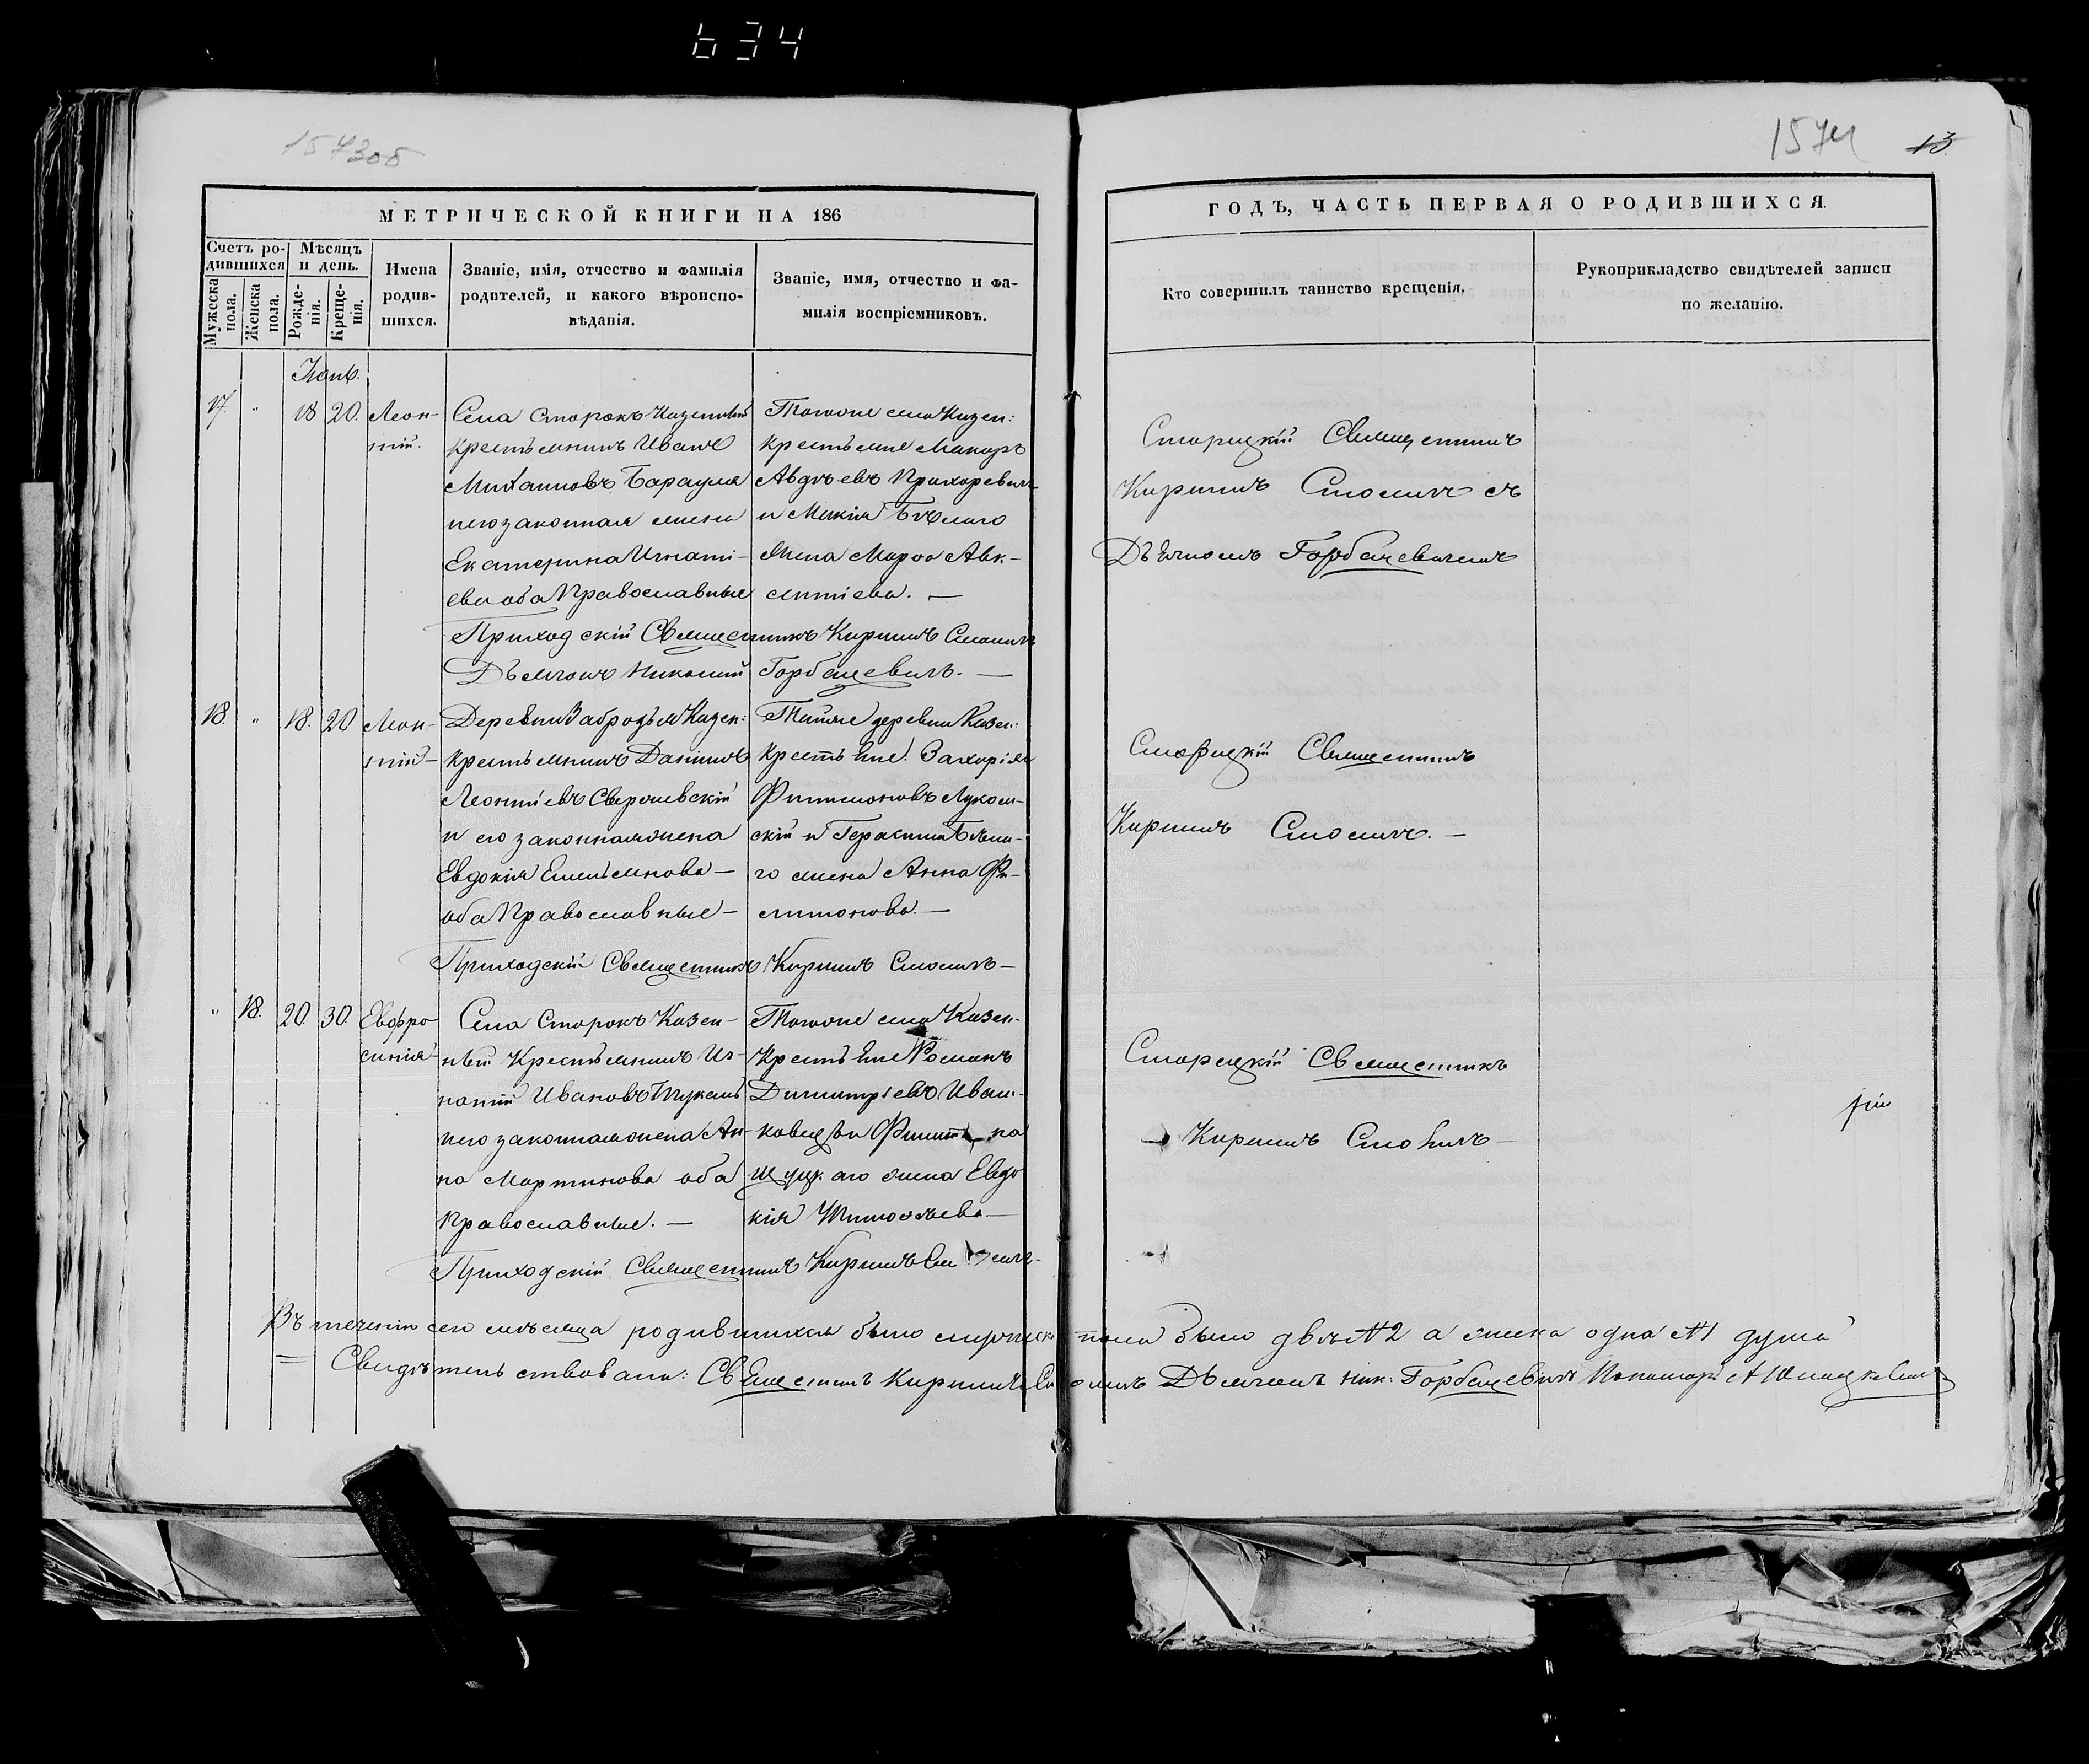 634
1573об
1574 13.
МЕТРИЧЕСКОЙ КНИГИ НА 186
ГОДЪ, ЧАСТЬ ПЕРВАЯ О РОДИВШИХСЯ.
Счетъ родившихся
Мужеска пола.
Женска пола.
Мѣсяцъ и день.
Рожденія.
Крещенія.
Имена родившихся.
Званіе, имя, отчество и фамилія родителей, и какого вѣроисповѣданія.
Званіе, имя, отчество и фамилія воспріемниковъ.
Кто совершилъ таинство крещенія.
Рукоприкладство свидѣтелей записи по желанію.
17. " 18 20. Леонтій.
Села Сторокъ Казенный
крестьянинъ Иванъ
Михаиловъ Барауля
и его законная жена
Екатерина Игнатіева оба Православные
Тогоже села Казен:
крестьяне Макаръ
Авдѣевъ Прихоревич
и Бѣлаго
жена Марѳа Авксентіева. —
Сторицкій Священникъ
Кириллъ Смоличъ съ
Дьячкомъ Горбацевичемъ
Приходскій Священникъ Кириллъ Смоличъ
Дьячокъ Николай Горбацевичъ. —
18. " 18. 20 Леонтій —
Деревни Забродья Казен:
крестьянинъ Даніилъ
Леонтіевъ
и его законная жена
Евдокія Емельянова —
оба Православные —
Тойже деревни Казен:
крестьяне: Захарія
Филимоновъ Лукомскій и Герасима Бѣлаго жена Анна Филимонова. —
Сторицкій Священникъ
Кириллъ Смоличъ. —
Приходскій Священникъ Кириллъ Смоличъ —
" 18. 20. 30. Евфросинія
Села Сторокъ Казенный Крестьянинъ Игнатій Ивановъ
и его законная жена Анна Мартинова оба
Православные. —
Тогоже села Казен.
Крестьяне Романъ
Димитріевъ
жена Евдокія
Сторицкій Священникъ
Кириллъ Смоличъ —
Приходскій Священникъ Кириллъ Смоличъ
Въ теченіи сего мѣсяца родившихся было мужеска пола было двѣ № 2 а женска одна № 1 душа
= Свидѣтельствовали: Священникъ Кириллъ Смоличъ Дьячокъ Ник: Горбацевичъ Пономарь А